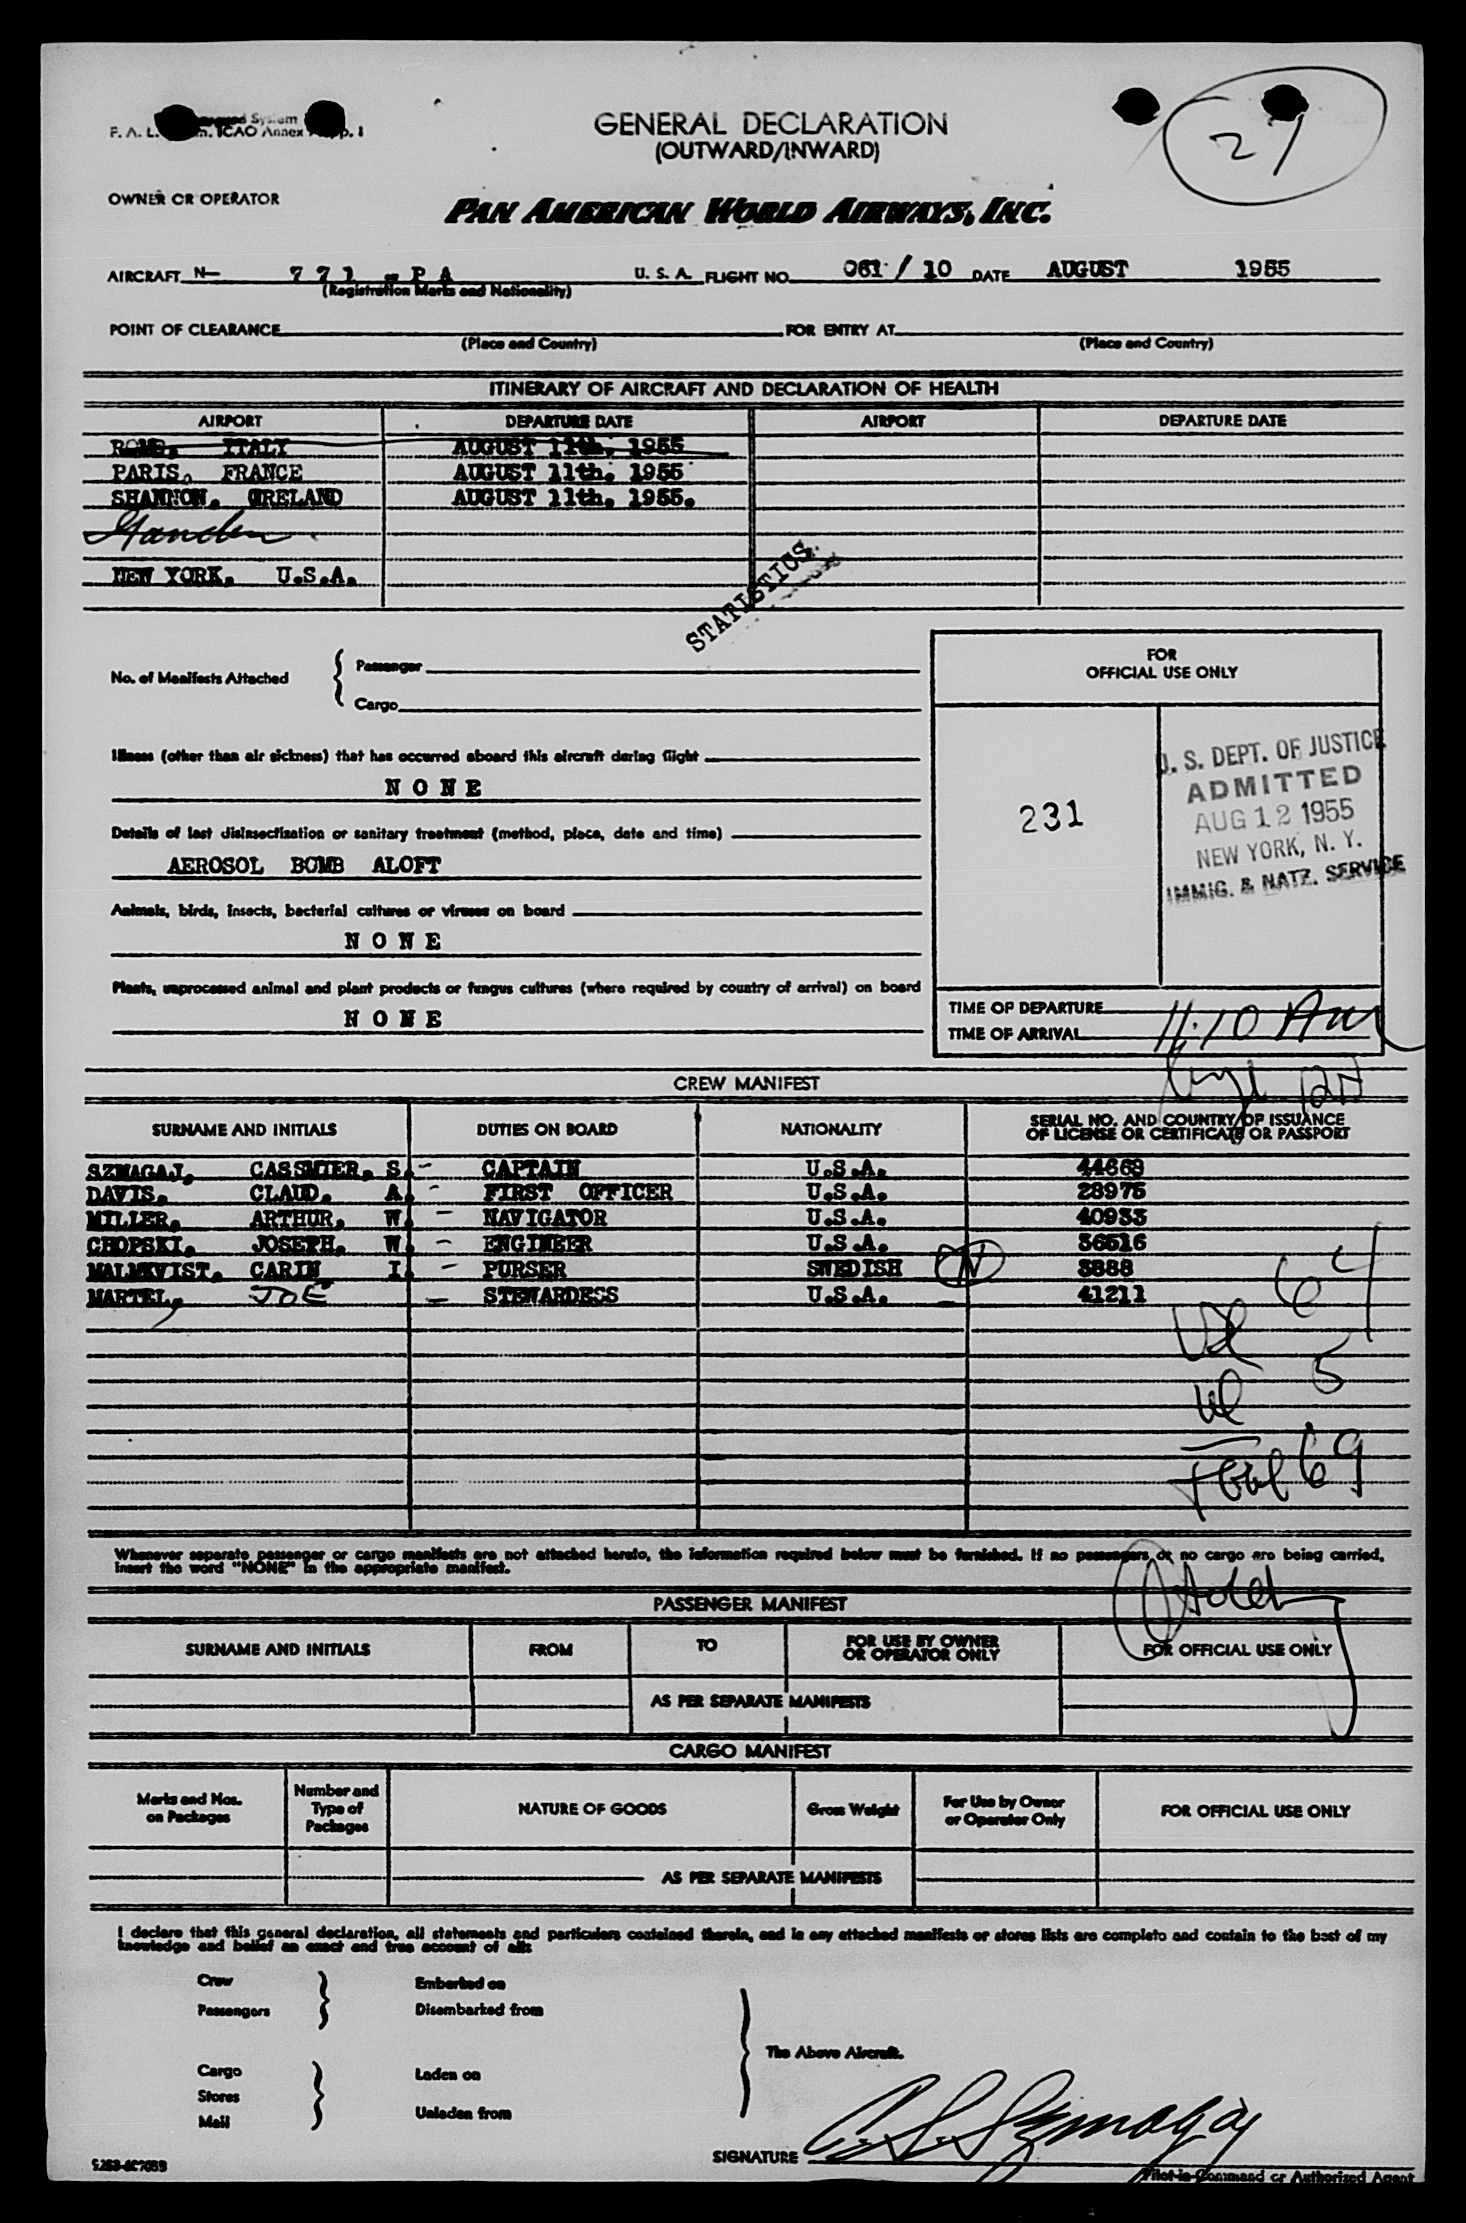 GENERAL DECLARATION
(OUTWARD/INWARD)
27
F. A. L. ICAO Annex
OWNER OR OPERATOR
PAN AMERICAN WORLD AIRWAYS, INC.
AIRCRAFT N— 771 - P A U. S. A. FLIGHT NO. 061 / 10 DATE AUGUST 1955
(Registration Marks and Nationality)
POINT OF CLEARANCE FOR ENTRY AT
(Place and Country) (Place and Country)
ITINERARY OF AIRCRAFT AND DECLARATION OF HEALTH
AIRPORT DEPARTURE DATE AIRPORT DEPARTURE DATE
ROME, ITALY AUGUST 11th. 1955
PARIS, FRANCE AUGUST 11th. 1955
SHANNON, IRELAND AUGUST 11th. 1955.
Gander
NEW YORK, U.S.A.
STATISTICS.
No. of Manifests Attached
Passenger
Cargo
FOR
OFFICIAL USE ONLY
Illness (other than air sickness) that has occurred aboard this aircraft during flight
N O N E
Details of last disinsectization or sanitary treatment (method, place, date and time)
AEROSOL BOMB ALOFT
Animals, birds, insects, bacterial cultures or viruses on board
N O N E
Plants, unprocessed animal and plant products or fungus cultures (where required by country of arrival) on board
N O N E
231
U. S. DEPT. OF JUSTICE
ADMITTED
AUG 12 1955
NEW YORK, N. Y.
IMMIG. & NATZ. SERVICE
TIME OF DEPARTURE
TIME OF ARRIVAL 11:10 AM
CREW MANIFEST
SURNAME AND INITIALS DUTIES ON BOARD NATIONALITY SERIAL NO. AND COUNTRY OF ISSUANCE
OF LICENSE OR CERTIFICATE OR PASSPORT
SZMAGAJ, CASSMIER, S. - CAPTAIN U.S.A. 44669
DAVIS, CLAUD, A. - FIRST OFFICER U.S.A. 28975
MILLER, ARTHUR, W. - NAVIGATOR U.S.A. 40933
CHOPSKI, JOSEPH, W. - ENGINEER U.S.A. 36516
MALMKVIST, CARIN I. - PURSER SWEDISH 3888
MARTEL, JOE - STEWARDESS U.S.A. 41211
64
5
Total 69
Whenever separate passenger or cargo manifests are not attached hereto, the information required below must be furnished. If no passengers or no cargo are being carried,
insert the word "NONE" in the appropriate manifest.
PASSENGER MANIFEST
SURNAME AND INITIALS FROM TO FOR USE BY OWNER
OR OPERATOR ONLY FOR OFFICIAL USE ONLY
AS PER SEPARATE MANIFESTS
CARGO MANIFEST
Marks and Nos.
on Packages Number and
Type of
Packages NATURE OF GOODS Gross Weight For Use by Owner
or Operator Only FOR OFFICIAL USE ONLY
AS PER SEPARATE MANIFESTS
I declare that this general declaration, all statements and particulars contained therein, and in any attached manifests or stores lists are complete and contain to the best of my
knowledge and belief an exact and true account of all:
Crew Embarked on
Passengers Disembarked from
The Above Aircraft.
Cargo Laden on
Stores
Mail Unladen from
SIGNATURE C. S. Szmagaj
Pilot-in-Command or Authorized Agent